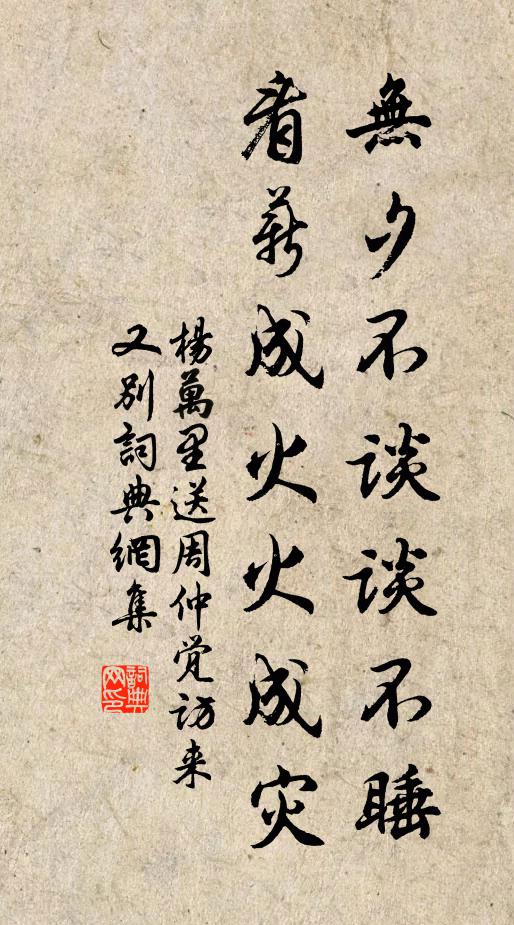 無夕不谈谈不睡
看薪成火火成灾
楊萬里送周仲觉访来
又别詞典網集
詞典
网印